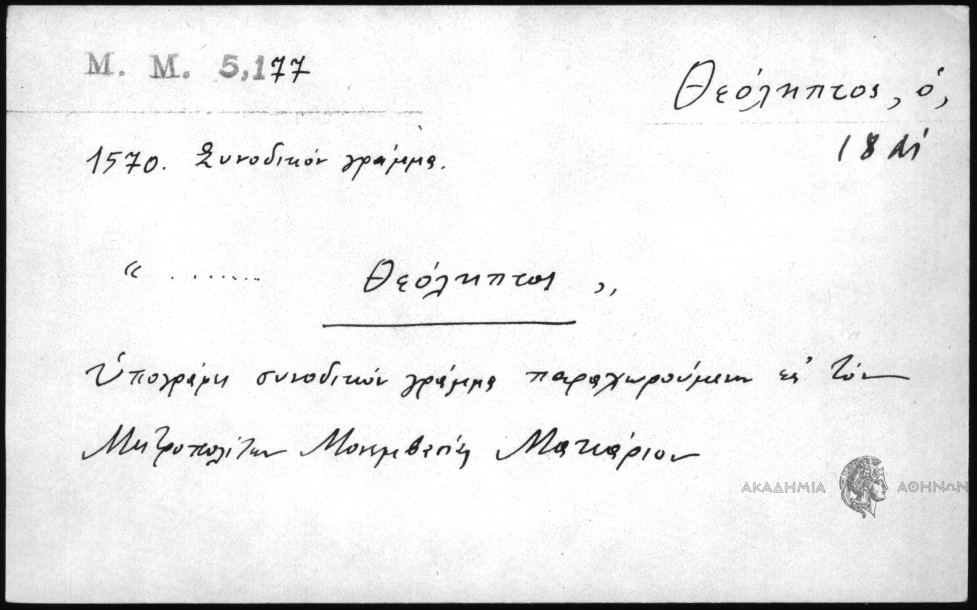 Μ. Μ. 5,177
Θεόληπτος, ὁ,
1570. Συνοδικόν γράμμα.
18
« ........ Θεόληπτος „
Ὑπογράφει συνοδικόν γράμμα παραχωρούμενον εἰς τόν
Μητροπολίτην Μονεμβασίας Μακάριον
ΑΚΑΔΗΜΙΑ ΑΘΗΝΩΝ